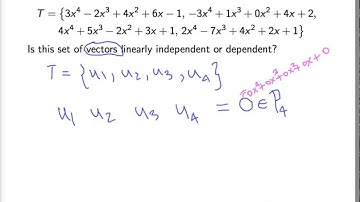 T = {3x⁴ − 2x³ + 4x² + 6x − 1, −3x⁴ + 1x³ + 0x² + 4x + 2,
4x⁴ + 5x³ − 2x² + 3x + 1, 2x⁴ − 7x³ + 4x² + 2x + 1}
Is this set of vectors linearly independent or dependent?
T = {u₁, u₂, u₃, u₄}
u₁ u₂ u₃ u₄ = 0 ∈ P₄
= 0x⁴+0x³+0x²+0x+0